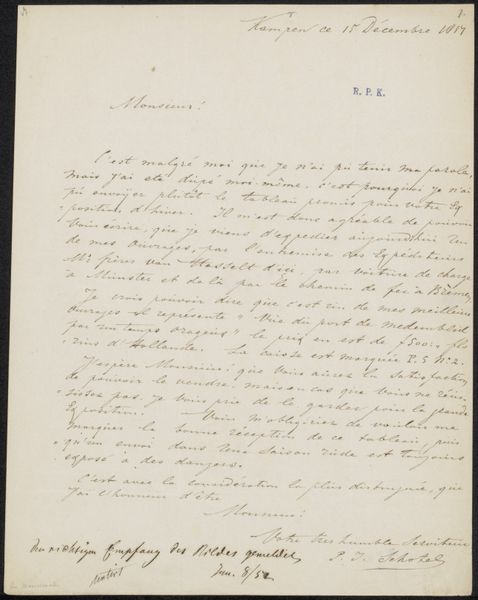 Kampen ce 15 Décembre 1857
R. P. K.
Monsieur!
C'est malgré moi que je n'ai pû tenir ma parole,
mais j'ai eté dupé moi même. c'est pourquoi je n'ai
pû envoyer plutôt le tableau promis pour votre Ex
position d'hiver. Il m'est donc agréable de pouvoir
Vous ecrire, que je viens d'expedier aujourdhui un
de mes ouvrages, par l'entremise des Expéditeurs
Mrs frères van Hasselt d'ici, par voiture de charge
à Munster et de là par le chemin de fer à Brême,
Je crois pouvoir dire que c'est un de mes meilleurs
ouvrages il représente "Vue du port de medemblik
par un temps orageux" le prix en est de f500:- flo
"rins d'Hollande. La caisse est marquée P. S No 2.
J'espère Monsieur! que Vous aurez la satisfaction
de pouvoir le vendre, mais en cas que Vous ne réus
"sissez pas, je Vous prie de le garder pour la grande
Exposition. Vous m'obligeriez de vouloir me
marquer la bonne réception de ce tableau, puis
"qu'un envoi dans une saison rude est toujours
exposé à des dangers.
C'est avec la considération la plus distinguée, que
j'ai l'honneur d'être
Monsieur!
Votre tres humble Serviteur
P. J. Schotel
Den richtigen Empfang des Bildes gemeldet
Jan. 8/58